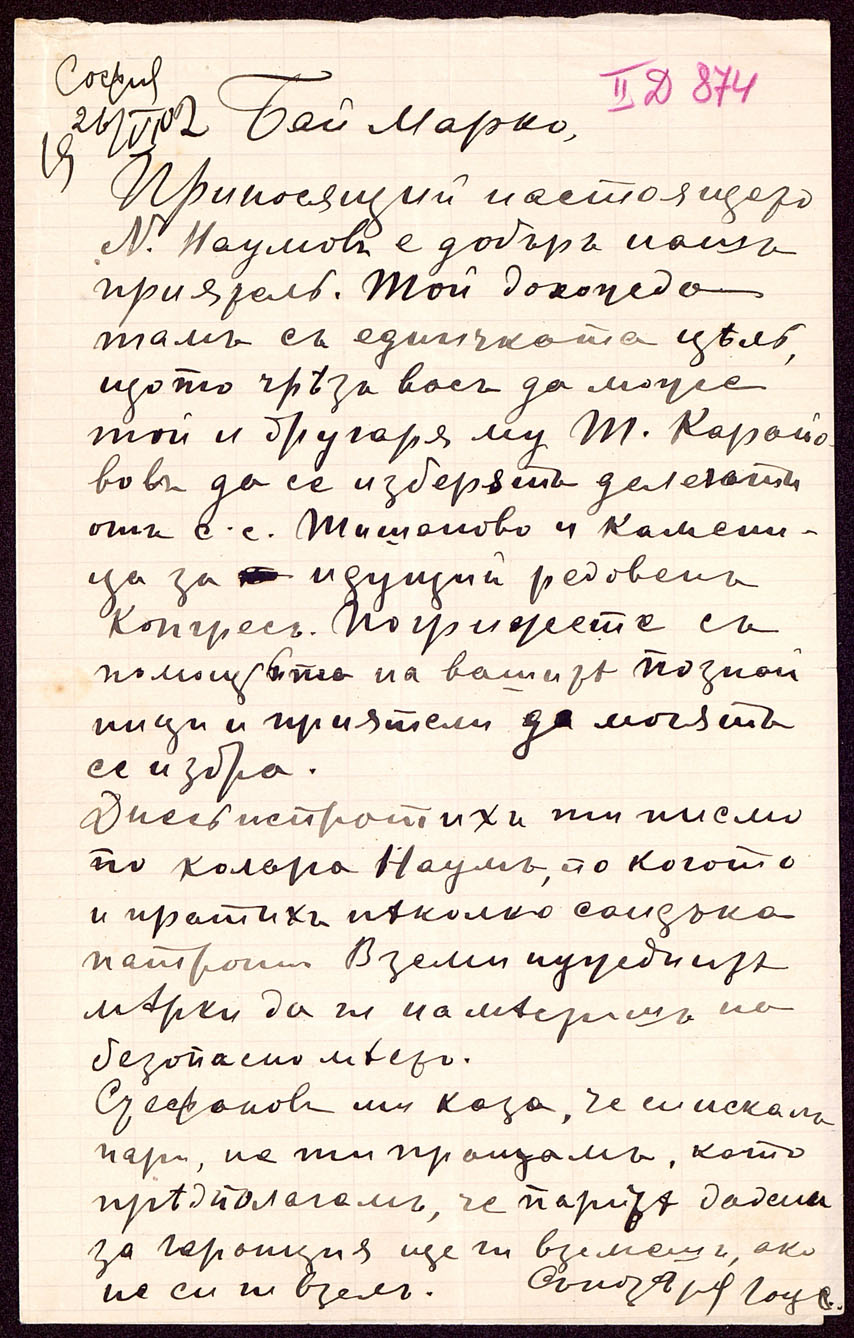 София
26/VI 02
II Д 874
Бай Марко,
Приносящий настоящето
N. Наумовъ е добъръ нашъ
приятель. Той дохожда
тамъ съ едничката цѣль,
щото чрѣзъ васъ да може
той и другаря му Т. Карайо-
вовъ да се изберятъ делегати
отъ с. с. Тишаново и Камени-
ца за идущий редовенъ
Конгресъ. Погрижете съ
помощьта на вашитѣ познай
ници и приятели да могятъ
се избра.
Днесь испротихъ ти писмо
по коларо Наумъ, по когото
и пратихъ нѣколко сандъка
патрони Вземи нужднитѣ
мѣрки да ги намѣстишъ на
безопасно мѣсто.
Стефановъ ми каза, че си искалъ
пари, не ти пращамъ, като
прѣдполагамъ, че паритѣ дадени
за гаранция ще ги вземешъ, ако
не си ги взелъ. Съ поздрав Гоце.